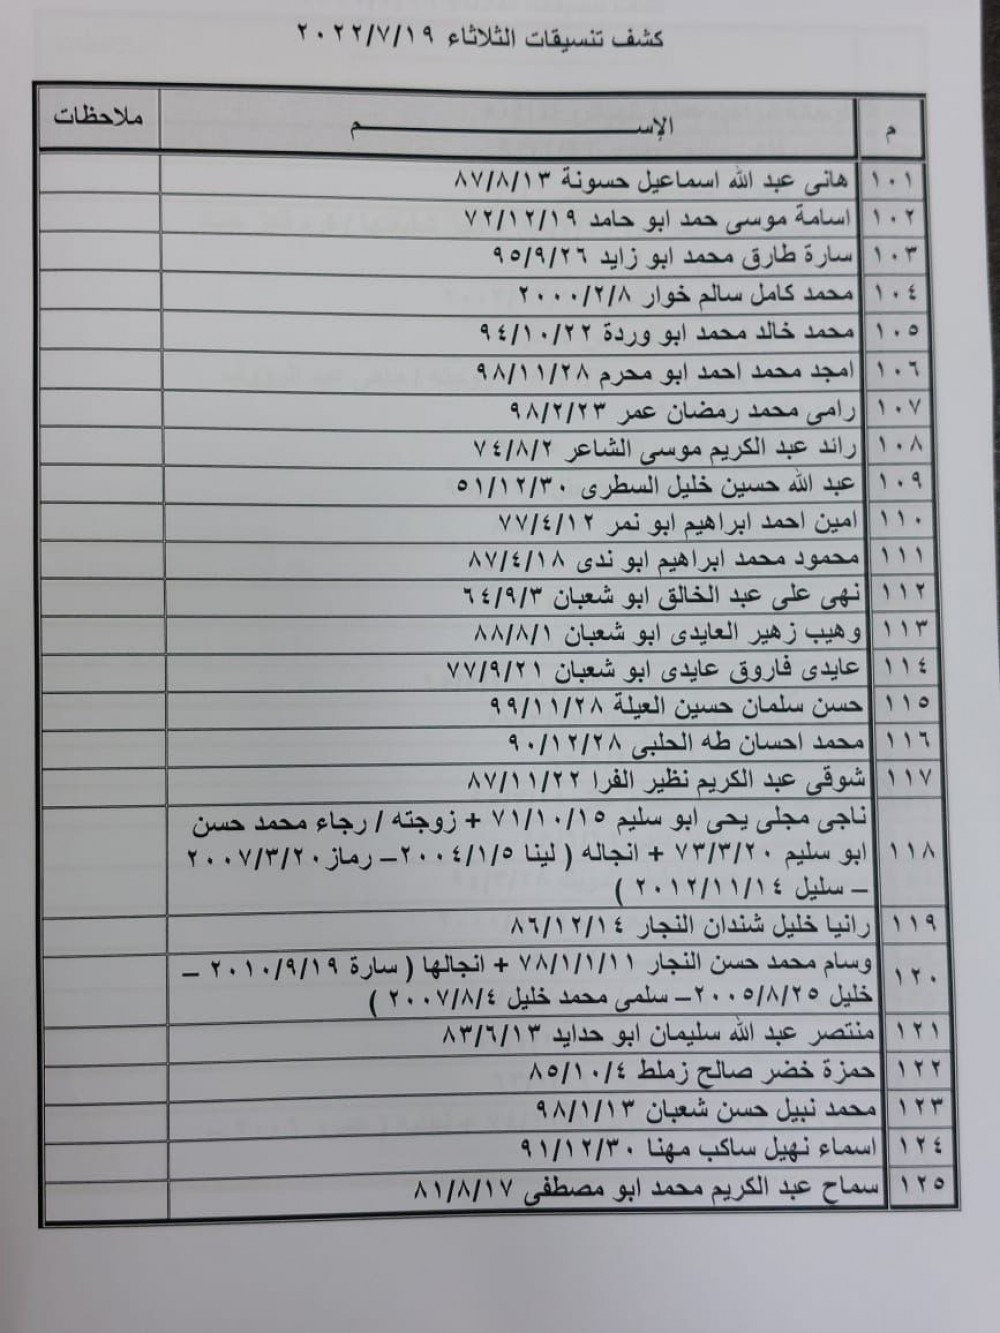 كشف تنسيقات الثلاثاء ٢٠٢٢/٧/١٩
م الإســـــــــم ملاحظات
١٠١ هانى عبد الله اسماعيل حسونة ٨٧/٨/١٣
١٠٢ اسامة موسى حمد ابو حامد ٧٢/١٢/١٩
١٠٣ سارة طارق محمد ابو زايد ٩٥/٩/٢٦
١٠٤ محمد كامل سالم خوار ٢٠٠٠/٢/٨
١٠٥ محمد خالد محمد ابو وردة ٩٤/١٠/٢٢
١٠٦ امجد محمد احمد ابو محرم ٩٨/١١/٢٨
١٠٧ رامى محمد رمضان عمر ٩٨/٢/٢٣
١٠٨ رائد عبد الكريم موسى الشاعر ٧٤/٨/٢
١٠٩ عبد الله حسين خليل السطرى ٥١/١٢/٣٠
١١٠ امين احمد ابراهيم ابو نمر ٧٧/٤/١٢
١١١ محمود محمد ابراهيم ابو ندى ٨٧/٤/١٨
١١٢ نهى على عبد الخالق ابو شعبان ٦٤/٩/٣
١١٣ وهيب زهير العايدى ابو شعبان ٨٨/٨/١
١١٤ عايدى فاروق عايدى ابو شعبان ٧٧/٩/٢١
١١٥ حسن سلمان حسين العيلة ٩٩/١١/٢٨
١١٦ محمد احسان طه الحلبى ٩٠/١٢/٢٨
١١٧ شوقى عبد الكريم نظير الفرا ٨٧/١١/٢٢
ناجى مجلى يحى ابو سليم ٧١/١٠/١٥ + زوجته / رجاء محمد حسن
١١٨ ابو سليم ٧٣/٣/٢٠ + انجاله ( لينا ٢٠٠٤/١/٥– رماز٢٠٠٧/٣/٢٠
– سليل ٢٠١٢/١١/١٤ )
١١٩ رانيا خليل شندان النجار ٨٦/١٢/١٤
١٢٠ وسام محمد حسن النجار ٧٨/١/١/١١ + انجالها ( سارة ٢٠١٠/٩/١٩ –
خليل ٢٠٠٥/٨/٢٥– سلمى محمد خليل ٢٠٠٧/٨/٤ )
١٢١ منتصر عبد الله سليمان ابو حدايد ٨٣/٦/١٣
١٢٢ حمزة خضر صالح زملط ٨٥/١٠/٤
١٢٣ محمد نبيل حسن شعبان ٩٨/١/١٣
١٢٤ اسماء نهيل ساكب مهنا ٩١/١٢/٣٠
١٢٥ سماح عبد الكريم محمد ابو مصطفى ٨١/٨/١٧